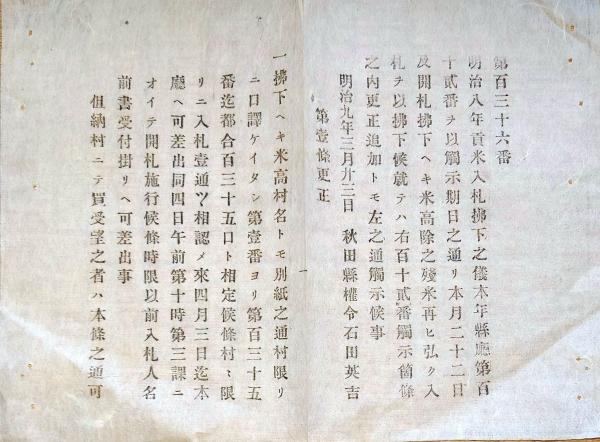 第百三十六番
明治八年貢米入札拂下之儀本年縣廳第百
十貳番ヲ以觸示期日之通リ本月二十二日
及開札拂下ヘキ米高除之殘米再ヒ弘ク入
札ヲ以拂下候就テハ右百十貳番觸示箇條
之内更正追加トモ左之通觸示候事
明治九年三月廿三日 秋田縣權令石田英吉
第壹條更正
一拂下ヘキ米高村名トモ別紙之通村限リ
ニ口譯ケイタシ第壹番ヨリ第百三十五
番迄都合百三十五口ト相定候條村〻限
リニ入札壹通ツヽ相認メ來四月三日迄本
廳ヘ可差出同四日午前第十時第三課ニ
オイテ開札施行候條時限以前入札人名
前書受付掛リヘ可差出事
但納村ニテ買受望之者ハ本條之通可
一